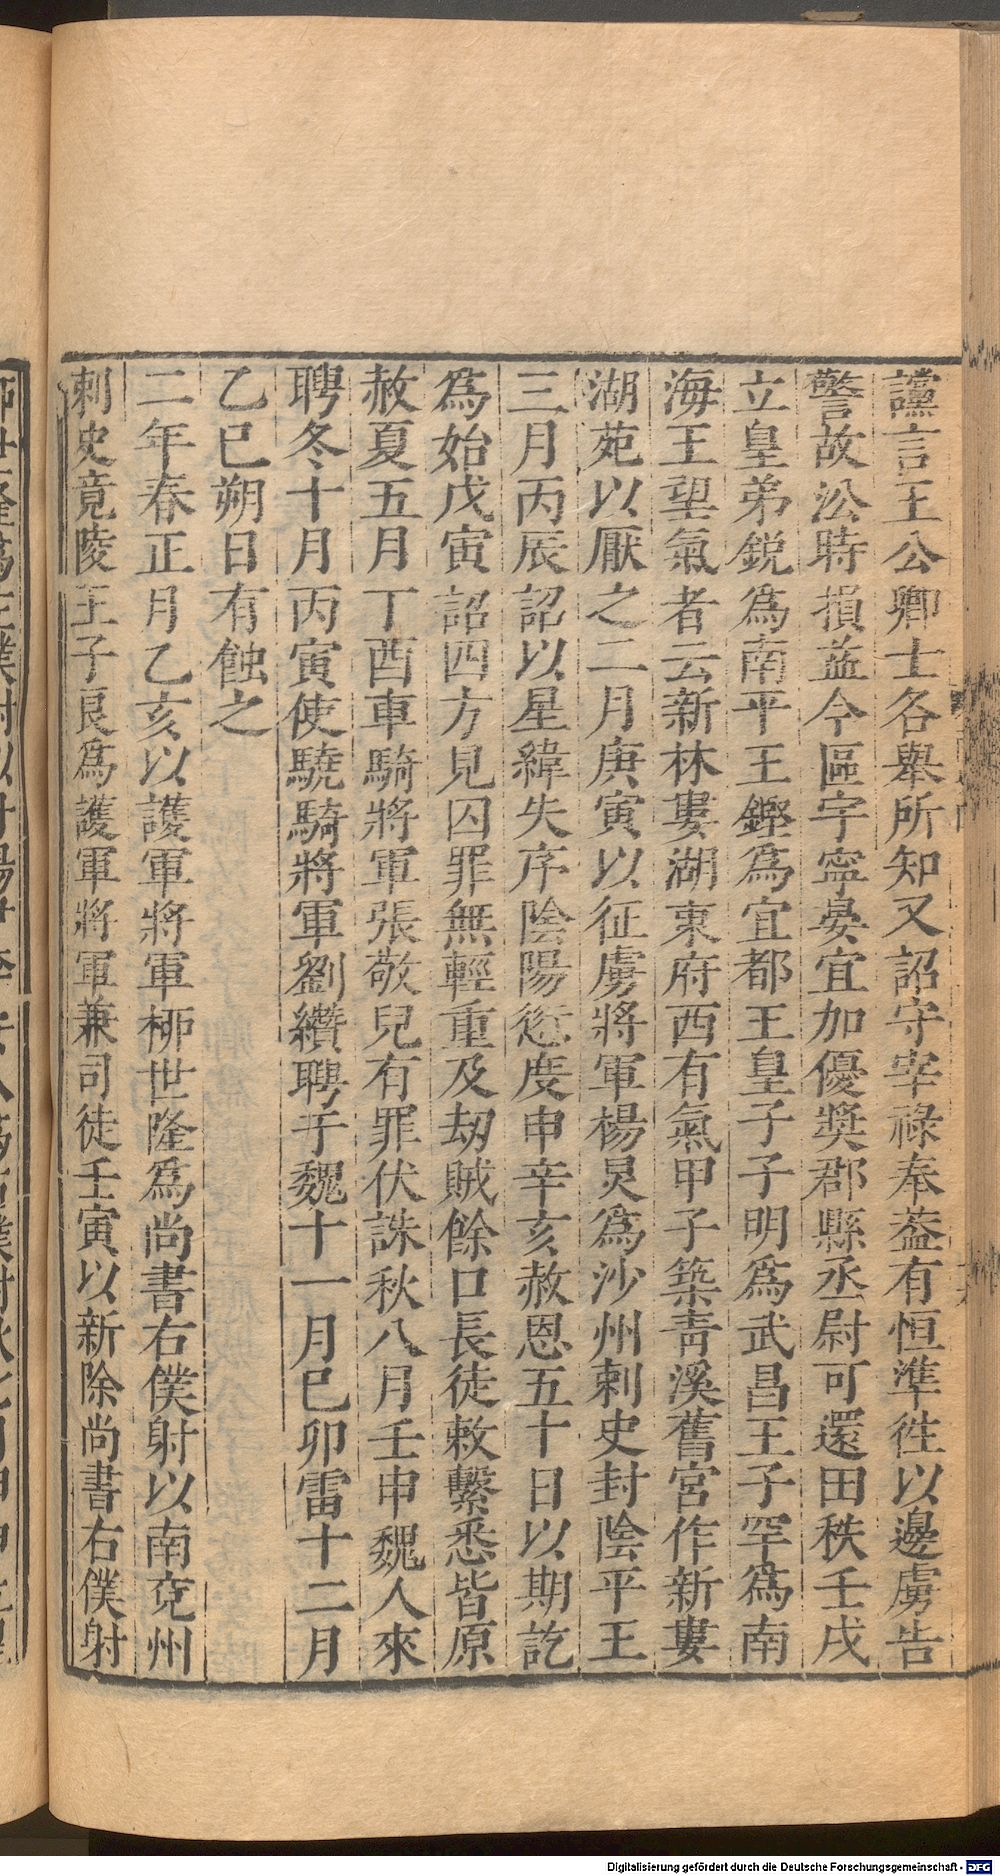 讜言王公卿士各舉所知又詔守宰祿奉葢有恒準徃以邊虜告
警故沿時損益今區宇寧晏宜加優獎郡縣丞尉可還田秩壬戌
立皇弟銳爲南平王鏗爲宜都王皇子子明爲武昌王子罕爲南
海王望氣者云新林婁湖東府西有氣甲子築靑溪舊宮作新婁
湖苑以厭之二月庚寅以征虜將軍楊炅爲沙州刺史封陰平王
三月丙辰詔以星緯失序陰陽愆度申辛亥赦恩五十日以期訖
爲始戊寅詔四方見囚罪無輕重及劫賊餘口長徒敕繫悉皆原
赦夏五月丁酉車騎將軍張敬兒有罪伏誅秋八月壬申魏人來
聘冬十月丙寅使驍騎將軍劉纘聘于魏十一月己卯雷十二月
乙巳朔日有蝕之
二年春正月乙亥以護軍將軍柳世隆爲尚書右僕射以南兗州
刺史竟陵王子良爲護軍將軍兼司徒壬寅以新除尚書右僕射
Digitalisierung gefördert durch die Deutsche Forschungsgemeinschaft - DFG